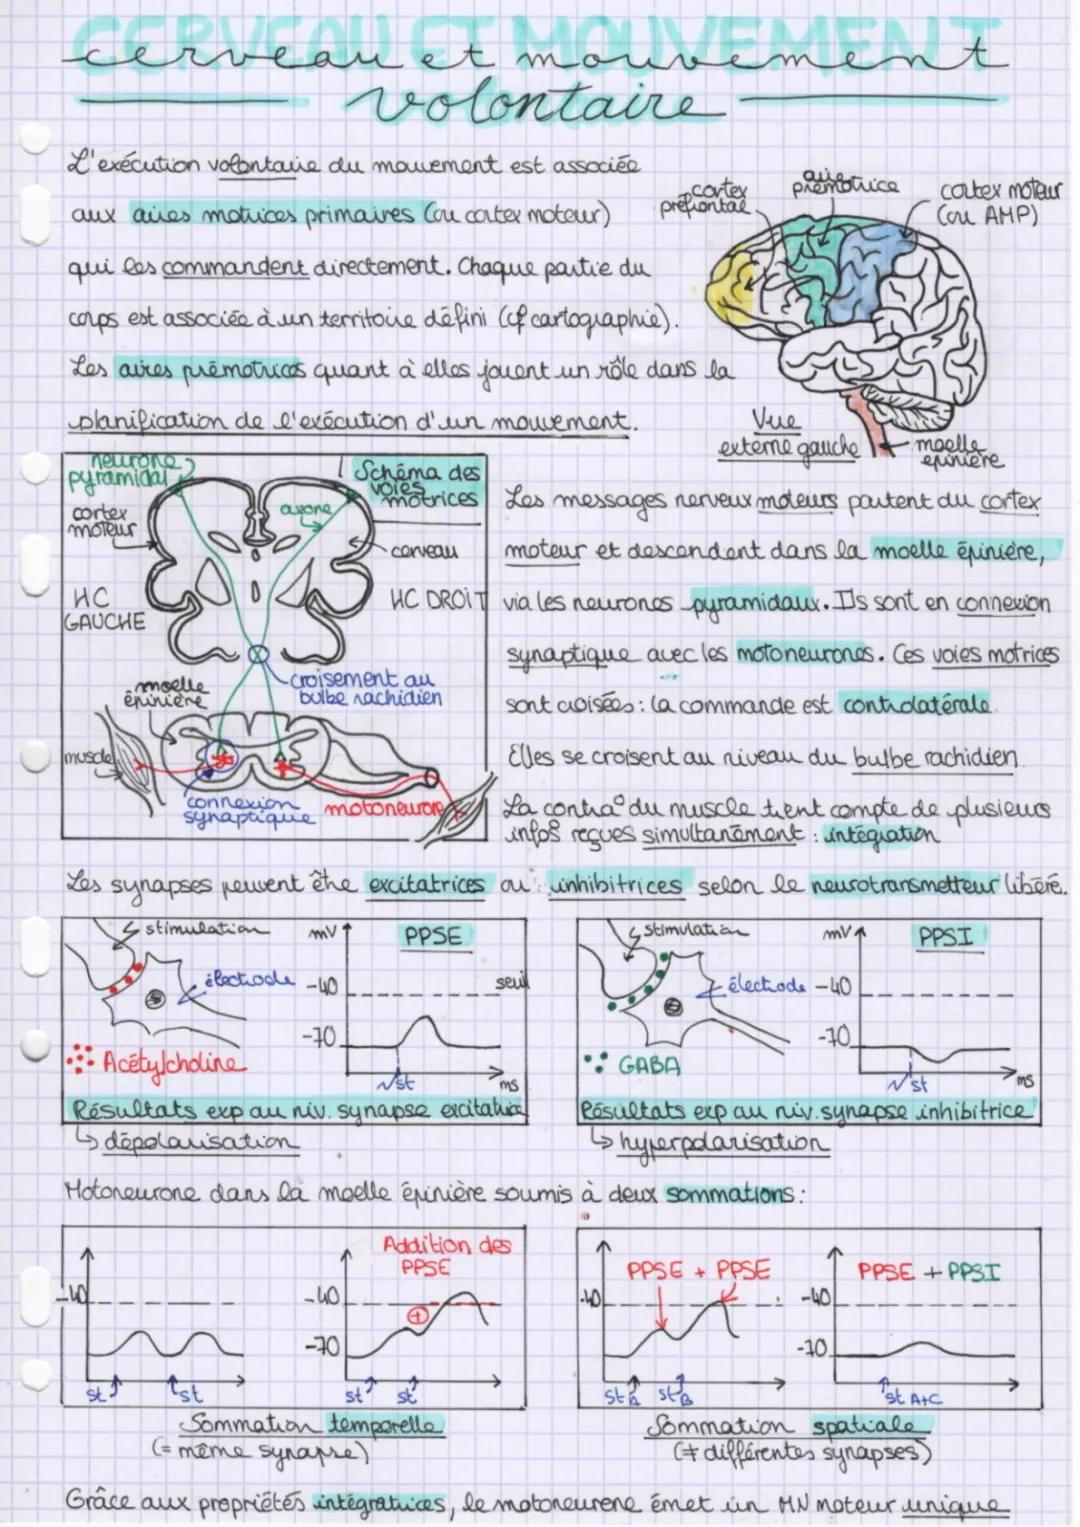 CERVEAU ET MOUVEMENT
cerveau et mouvement
volontaire
L'exécution volontaire du mouvement est associée
aux aires motrices primaires (ou cortex moteur)
qui les commandent directement. Chaque partie du
corps est associée à un territoire défini (cf cartographie).
Les aires prémotrices quant à elles jouent un rôle dans la
planification de l'exécution d'un mouvement.
cortex
préfrontal
aire
prémotrice
cortex moteur
(ou AMP)
Vue
externe gauche
moelle
épinière
neurone
pyramidal
Schéma des
voies
motrices
cortex
moteur
axone
cerveau
HC
GAUCHE
HC DROIT
croisement au
bulbe rachidien
moelle
épinière
muscle
connexion
synaptique
motoneurone
Les messages nerveux moteurs partent du cortex
moteur et descendent dans la moelle épinière,
via les neurones pyramidaux. Ils sont en connexion
synaptique avec les motoneurones. Ces voies motrices
sont croisées : la commande est controlatérale.
Elles se croisent au niveau du bulbe rachidien.
La contra° du muscle tient compte de plusieurs
infos reçues simultanément : intégration
Les synapses peuvent être excitatrices ou inhibitrices selon le neurotransmetteur libéré.
stimulation
mV
PPSE
électrode
-40
seuil
-70
Acétylcholine
st
ms
Résultats exp au niv. synapse excitatrice
↳ dépolarisation
stimulation
mV
PPSI
électrode
-40
-70
GABA
st
ms
Résultats exp au niv. synapse inhibitrice
↳ hyperpolarisation
Motoneurone dans la moelle épinière soumis à deux sommations :
-40
st
st
Addition des
PPSE
-40
+
-70
st
st
Sommation temporelle
(= même synapse)
-40
PPSE + PPSE
st A
st B
PPSE + PPSI
-40
-70
st A+C
Sommation spatiale
(≠ différentes synapses)
Grâce aux propriétés intégratrices, le motoneurone émet un MN moteur unique